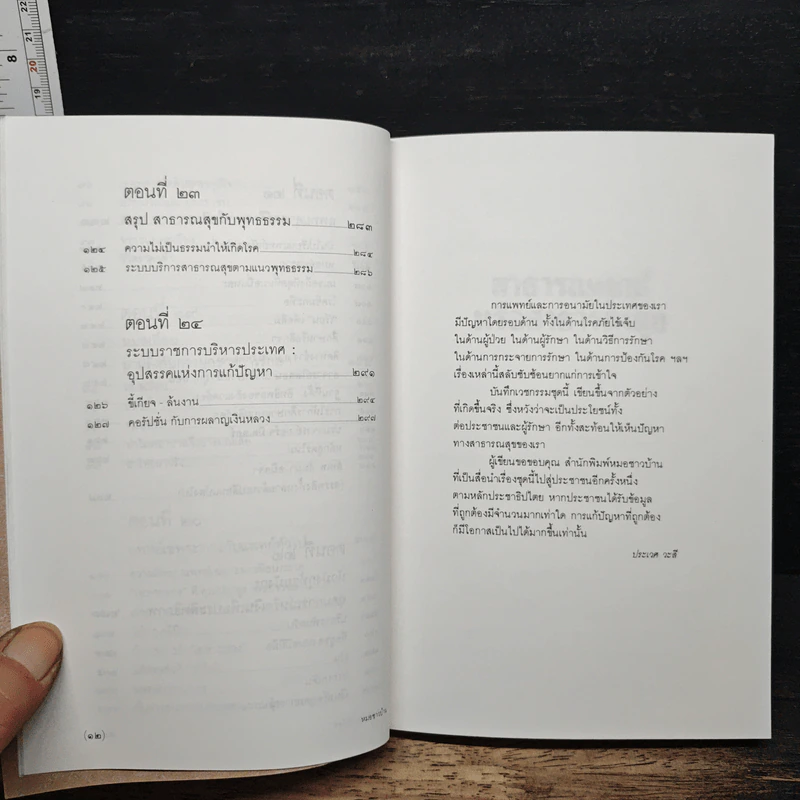 ตอนที่ ๒๓
สรุป สาธารณสุขกับพุทธธรรม ๒๘๓
๑๒๔ ความไม่เป็นธรรมนำให้เกิดโรค ๒๘๔
๑๒๕ ระบบบริการสาธารณสุขตามแนวพุทธธรรม ๒๘๖
ตอนที่ ๒๔
ระบบราชการบริหารประเทศ :
อุปสรรคแห่งการแก้ปัญหา ๒๙๑
๑๒๖ ขี้เกียจ - ล้นงาน ๒๙๔
๑๒๗ คอรัปชั่น กับการผลาญเงินหลวง ๒๙๗
(๑๒)
การแพทย์และการอนามัยในประเทศของเรา
มีปัญหาโดยรอบด้าน ทั้งในด้านโรคภัยไข้เจ็บ
ในด้านผู้ป่วย ในด้านผู้รักษา ในด้านวิธีการรักษา
ในด้านการกระจายการรักษา ในด้านการป้องกันโรค ฯลฯ
เรื่องเหล่านี้สลับซับซ้อนยากแก่การเข้าใจ
บันทึกเวชกรรมชุดนี้ เขียนขึ้นจากตัวอย่าง
ที่เกิดขึ้นจริง ซึ่งหวังว่าจะเป็นประโยชน์ทั้ง
ต่อประชาชนและผู้รักษา อีกทั้งสะท้อนให้เห็นปัญหา
ทางสาธารณสุขของเรา
ผู้เขียนขอขอบคุณ สำนักพิมพ์หมอชาวบ้าน
ที่เป็นสื่อนำเรื่องชุดนี้ไปสู่ประชาชนอีกครั้งหนึ่ง
ตามหลักประชาธิปไตย หากประชาชนได้รับข้อมูล
ที่ถูกต้องมีจำนวนมากเท่าใด การแก้ปัญหาที่ถูกต้อง
ก็มีโอกาสเป็นไปได้มากขึ้นเท่านั้น
ประเวศ วะสี